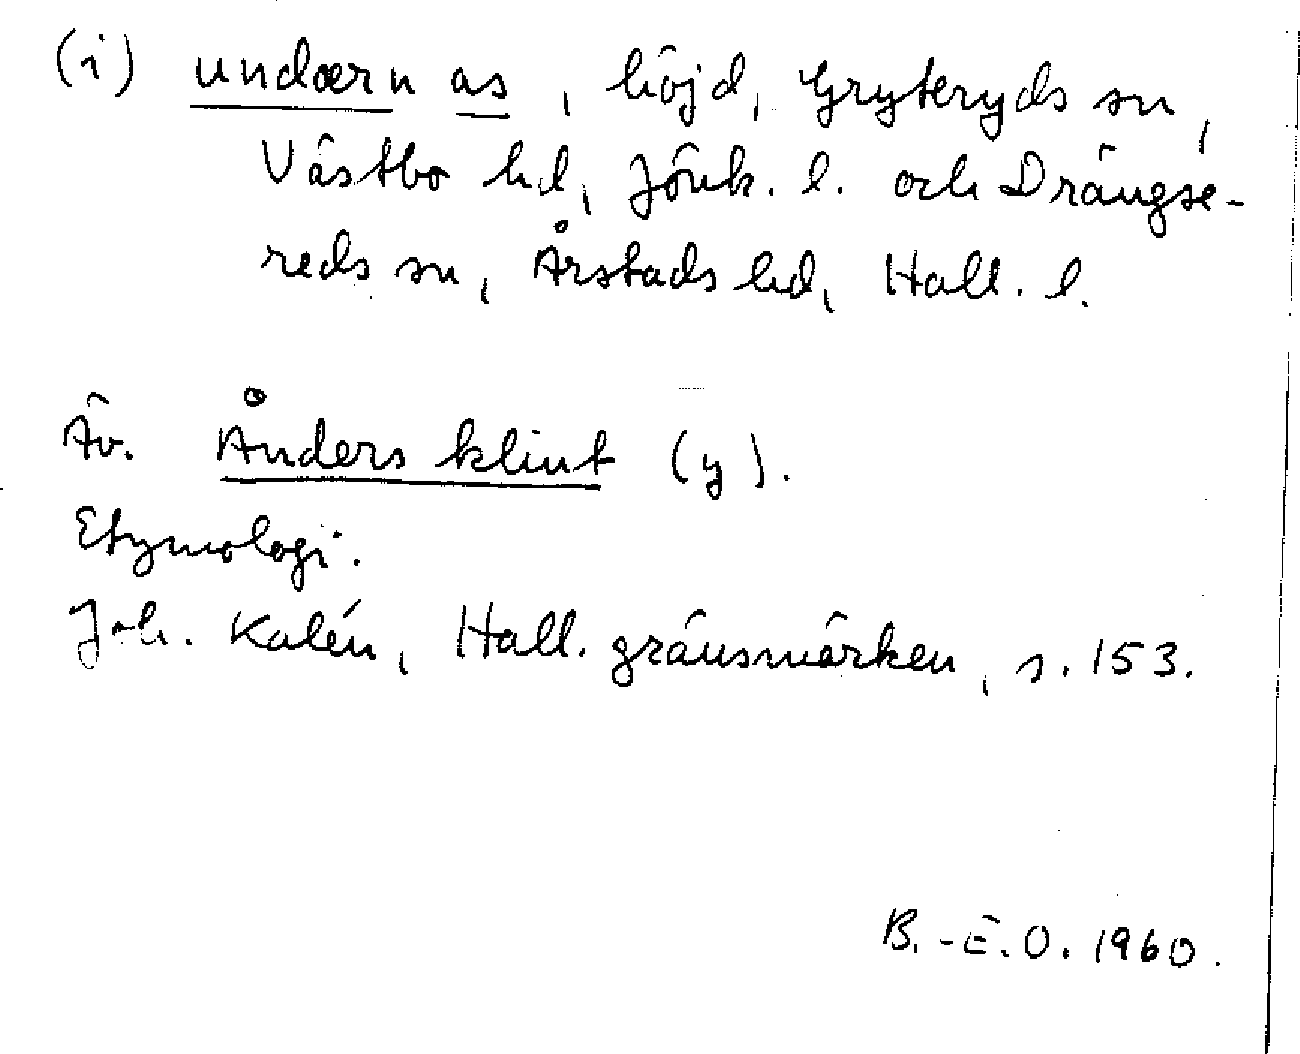 (i) undærn as, höjd, Gryteryds sn,
Västbo hd, Jönk. l. och Drängse-
reds sn, Årstads hd, Hall. l.
Äv. Ånders klint (y).
Etymologi.
Joh. Kalén, Hall. gränsmärken, s. 153.
B.-E.O. 1960.